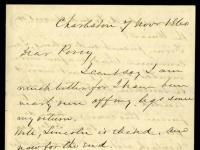 Charleston 7 Novr 1860
Dear Percy
I can say I am
much better for I have been
nearly run off my legs since
my return.
Mr. Lincoln is elected. And
now for the end